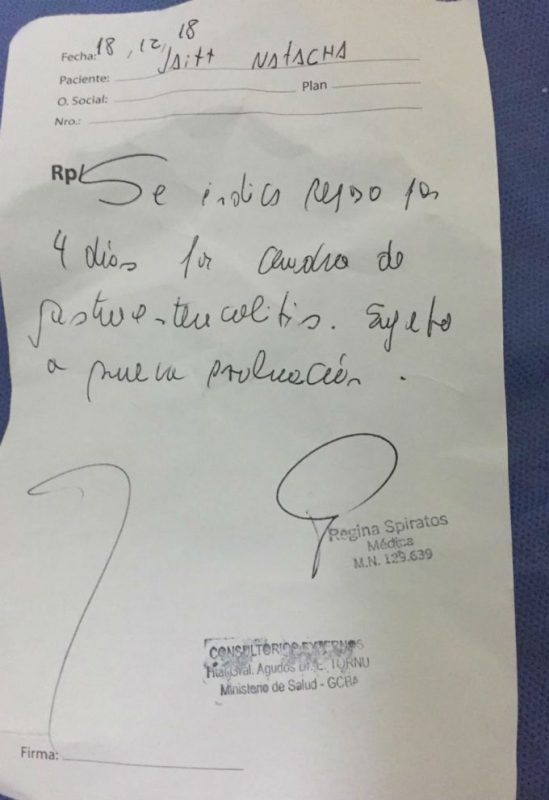 Fecha: 18, 12, 18
Paciente: JAITT NATACHA
O. Social: Plan
Nro.:
Rp/ Se indica reposo por
4 días por cuadro de
gastroenterocolitis. Sujeto
a nueva evaluación.
Regina Spiratos
Médica
M.N. 129.639
CONSULTORIOS EXTERNOS
Htal. Gral. Agudos Dr. E. TORNU
Ministerio de Salud - GCBA
Firma: